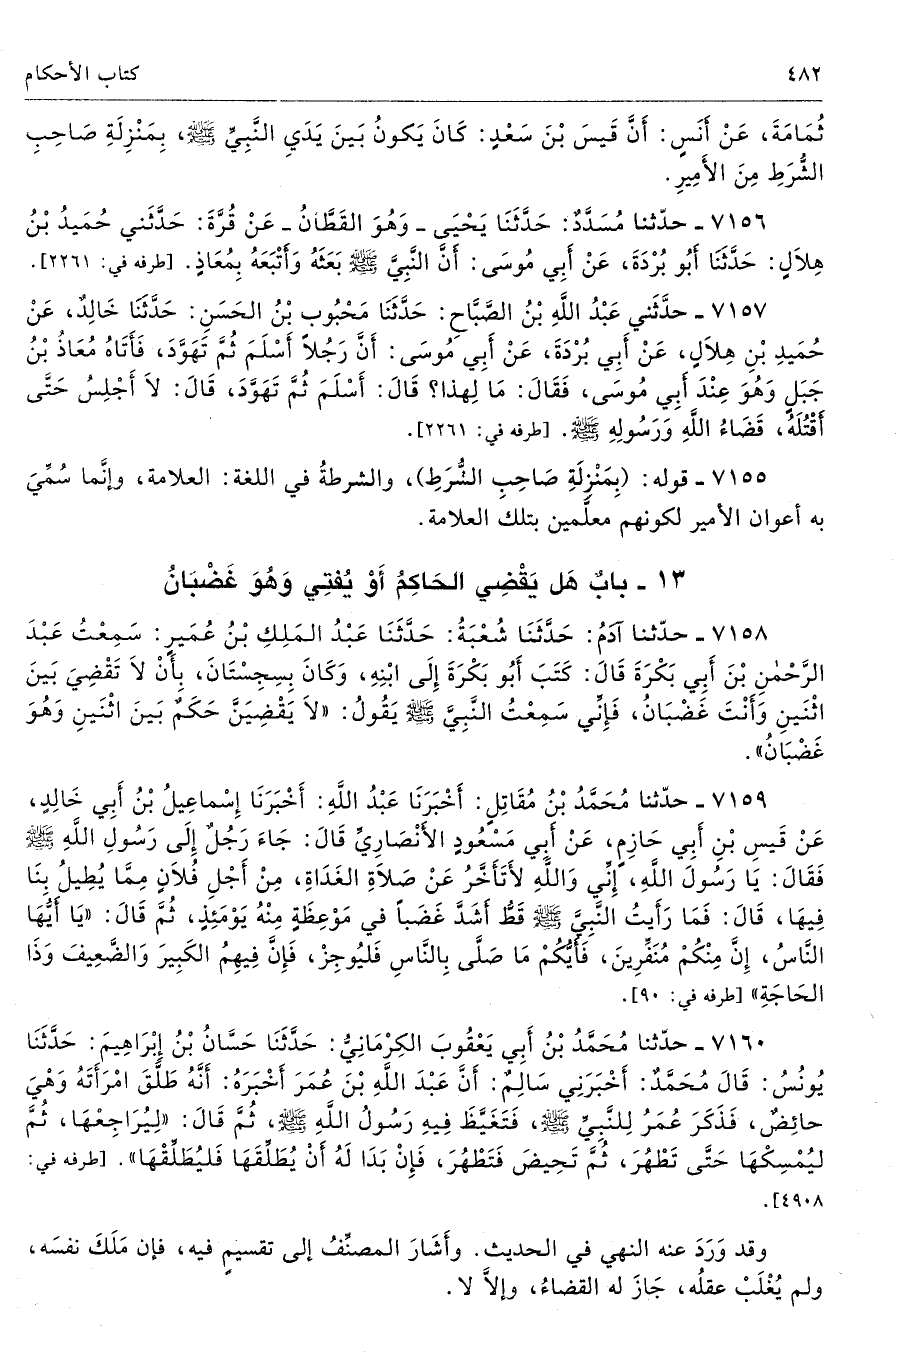 ٤٨٢ كتاب الأحكام
ثُمَامَةَ، عَنْ أَنَسٍ: أَنَّ قَيسَ بْنَ سَعْدٍ: كَانَ يَكونُ بَينَ يَدَيِ النَّبِيِّ ﷺ، بِمَنْزِلَةِ صَاحِبِ
الشُّرَطِ مِنَ الأَمِيرِ.
٧١٥٦ ـ حدّثنا مُسَدَّدٌ: حَدَّثَنَا يَحْيَى ـ وَهُوَ القَطَّانُ ـ عَنْ قُرَّةَ: حَدَّثَني حُمَيدُ بْنُ
هِلاَلٍ: حَدَّثَنَا أَبُو بُرْدَةَ، عَنْ أَبِي مُوسَى: أَنَّ النَّبِيَّ ﷺ بَعَثَهُ وَأَتْبَعَهُ بِمُعَاذٍ. [طرفه في: ٢٢٦١].
٧١٥٧ ـ حدَّثَني عَبْدُ اللَّهِ بْنُ الصَّبَّاحِ: حَدَّثَنَا مَحْبُوبِ بْنُ الحَسَنِ: حَدَّثَنَا خَالِدٌ، عَنْ
حُمَيدِ بْنِ هِلاَلٍ، عَنْ أَبِي بُرْدَةَ، عَنْ أَبِي مُوسَى: أَنَّ رَجُلاً أَسْلَمَ ثُمَّ تَهَوَّدَ، فَأَتَاهُ مُعَاذُ بْنُ
جَبَلٍ وَهُوَ عِنْدَ أَبِي مُوسَى، فَقَالَ: مَا لِهذا؟ قَالَ: أَسْلَمَ ثُمَّ تَهَوَّدَ، قَالَ: لاَ أَجْلِسُ حَتَّى
أَقْتُلَهُ، قَضَاءُ اللَّهِ وَرَسُولِهِ ﷺ. [طرفه في: ٢٢٦١].
٧١٥٥ ـ قوله: (بِمَنْزِلَةِ صَاحِبِ الشُّرَطِ)، والشرطةُ في اللغة: العلامة، وإنَّما سُمِّيَ
به أعوان الأمير لكونهم معلَّمين بتلك العلامة.
١٣ ـ بابٌ هَل يَقْضِي الحَاكِمُ أَوْ يُفْتِي وَهُوَ غَضْبَانُ
٧١٥٨ ـ حدّثنا آدَمُ: حَدَّثَنَا شُعْبَةُ: حَدَّثَنَا عَبْدُ المَلِكِ بْنُ عُمَيرٍ: سَمِعْتُ عَبْدَ
الرَّحْمٰنِ بْنَ أَبِي بَكْرَةَ قَالَ: كَتَبَ أَبُو بَكْرَةَ إِلَى ابْنِهِ، وَكَانَ بِسِجِسْتَانَ، بِأَنْ لاَ تَقْضِيَ بَينَ
اثْنَينِ وَأَنْتَ غَضْبَانُ، فَإِنِّي سَمِعْتُ النَّبِيَّ ﷺ يَقُولُ: «لاَ يَقْضِيَنَّ حَكَمٌ بَينَ اثْنَينِ وَهُوَ
غَضْبَانُ».
٧١٥٩ ـ حدّثنا مُحَمَّدُ بْنُ مُقَاتِلٍ: أَخْبَرَنَا عَبْدُ اللَّهِ: أَخْبَرَنَا إِسْماعِيلُ بْنُ أَبِي خَالِدٍ،
عَنْ قَيسِ بْنِ أَبِي حَازِمٍ، عَنْ أَبِي مَسْعُودٍ الأَنْصَارِيِّ قَالَ: جَاءَ رَجُلٌ إِلَى رَسُولِ اللَّهِ ﷺ
فَقَالَ: يَا رَسُولَ اللَّهِ، إِنِّي وَاللَّهِ لأَتَأَخَّرُ عَنْ صَلاَةِ الغَدَاةِ، مِنْ أَجْلِ فُلاَنٍ مِمَّا يُطِيلُ بِنَا
فِيهَا، قَالَ: فَمَا رَأَيتُ النَّبِيَّ ﷺ قَطُّ أَشَدَّ غَضَباً في مَوْعِظَةٍ مِنْهُ يَوْمَئِذٍ، ثُمَّ قَالَ: «يَا أَيُّهَا
النَّاسُ، إِنَّ مِنْكُمْ مُنَفِّرِينَ، فَأَيُّكُمْ مَا صَلَّى بِالنَّاسِ فَليُوجِزْ، فَإِنَّ فِيهِمُ الكَبِيرَ وَالضَّعِيفَ وَذَا
الحَاجَةِ» [طرفه في: ٩٠].
٧١٦٠ ـ حدّثنا مُحَمَّدُ بْنُ أَبِي يَعْقُوبَ الكِرْمَانِيُّ: حَدَّثَنَا حَسَّانُ بْنُ إِبْرَاهِيمَ: حَدَّثَنَا
يُونُسُ: قَالَ مُحَمَّدٌ: أَخْبَرَنِي سَالِمٌ: أَنَّ عَبْدَ اللَّهِ بْنَ عُمَرَ أَخْبَرَهُ: أَنَّهُ طَلَّقَ امْرَأَتَهُ وَهْيَ
حائِضٌ، فَذَكَرَ عُمَرُ لِلنَّبِيِّ ﷺ، فَتَغَيَّظَ فِيهِ رَسُولُ اللَّهِ ﷺ، ثُمَّ قَالَ: «لِيُرَاجِعْهَا، ثُمَّ
لِيُمْسِكْهَا حَتَّى تَطْهُرَ، ثُمَّ تَحِيضَ فَتَطْهُرَ، فَإِنْ بَدَا لَهُ أَنْ يُطَلِّقَهَا فَليُطَلِّقْهَا». [طرفه في:
٤٩٠٨].
وقد وَرَدَ عنه النهي في الحديث. وأَشَارَ المصنِّفُ إلى تقسيمٍ فيه، فإن مَلَكَ نفسَه،
ولم يُغْلَبْ عقلُه، جَازَ له القضاءُ، وإلاَّ لا.